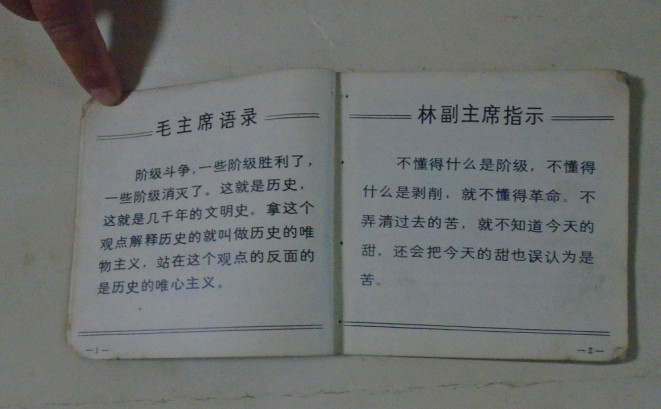 毛主席语录
阶级斗争,一些阶级胜利了,
一些阶级消灭了。这就是历史,
这就是几千年的文明史。拿这个
观点解释历史的就叫做历史的唯
物主义,站在这个观点的反面的
是历史的唯心主义。
—1—
林副主席指示
不懂得什么是阶级,不懂得
什么是剥削,就不懂得革命。不
弄清过去的苦,就不知道今天的
甜,还会把今天的甜也误认为是
苦。
—2—